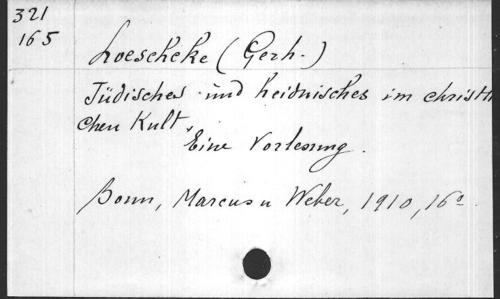 321
165
Loeschcke (Gerh.)
Jüdisches und heidnisches im christli
chen Kult.
Eine Vorlesung.
Bonn, Marcus u Weber, 1910, 16°